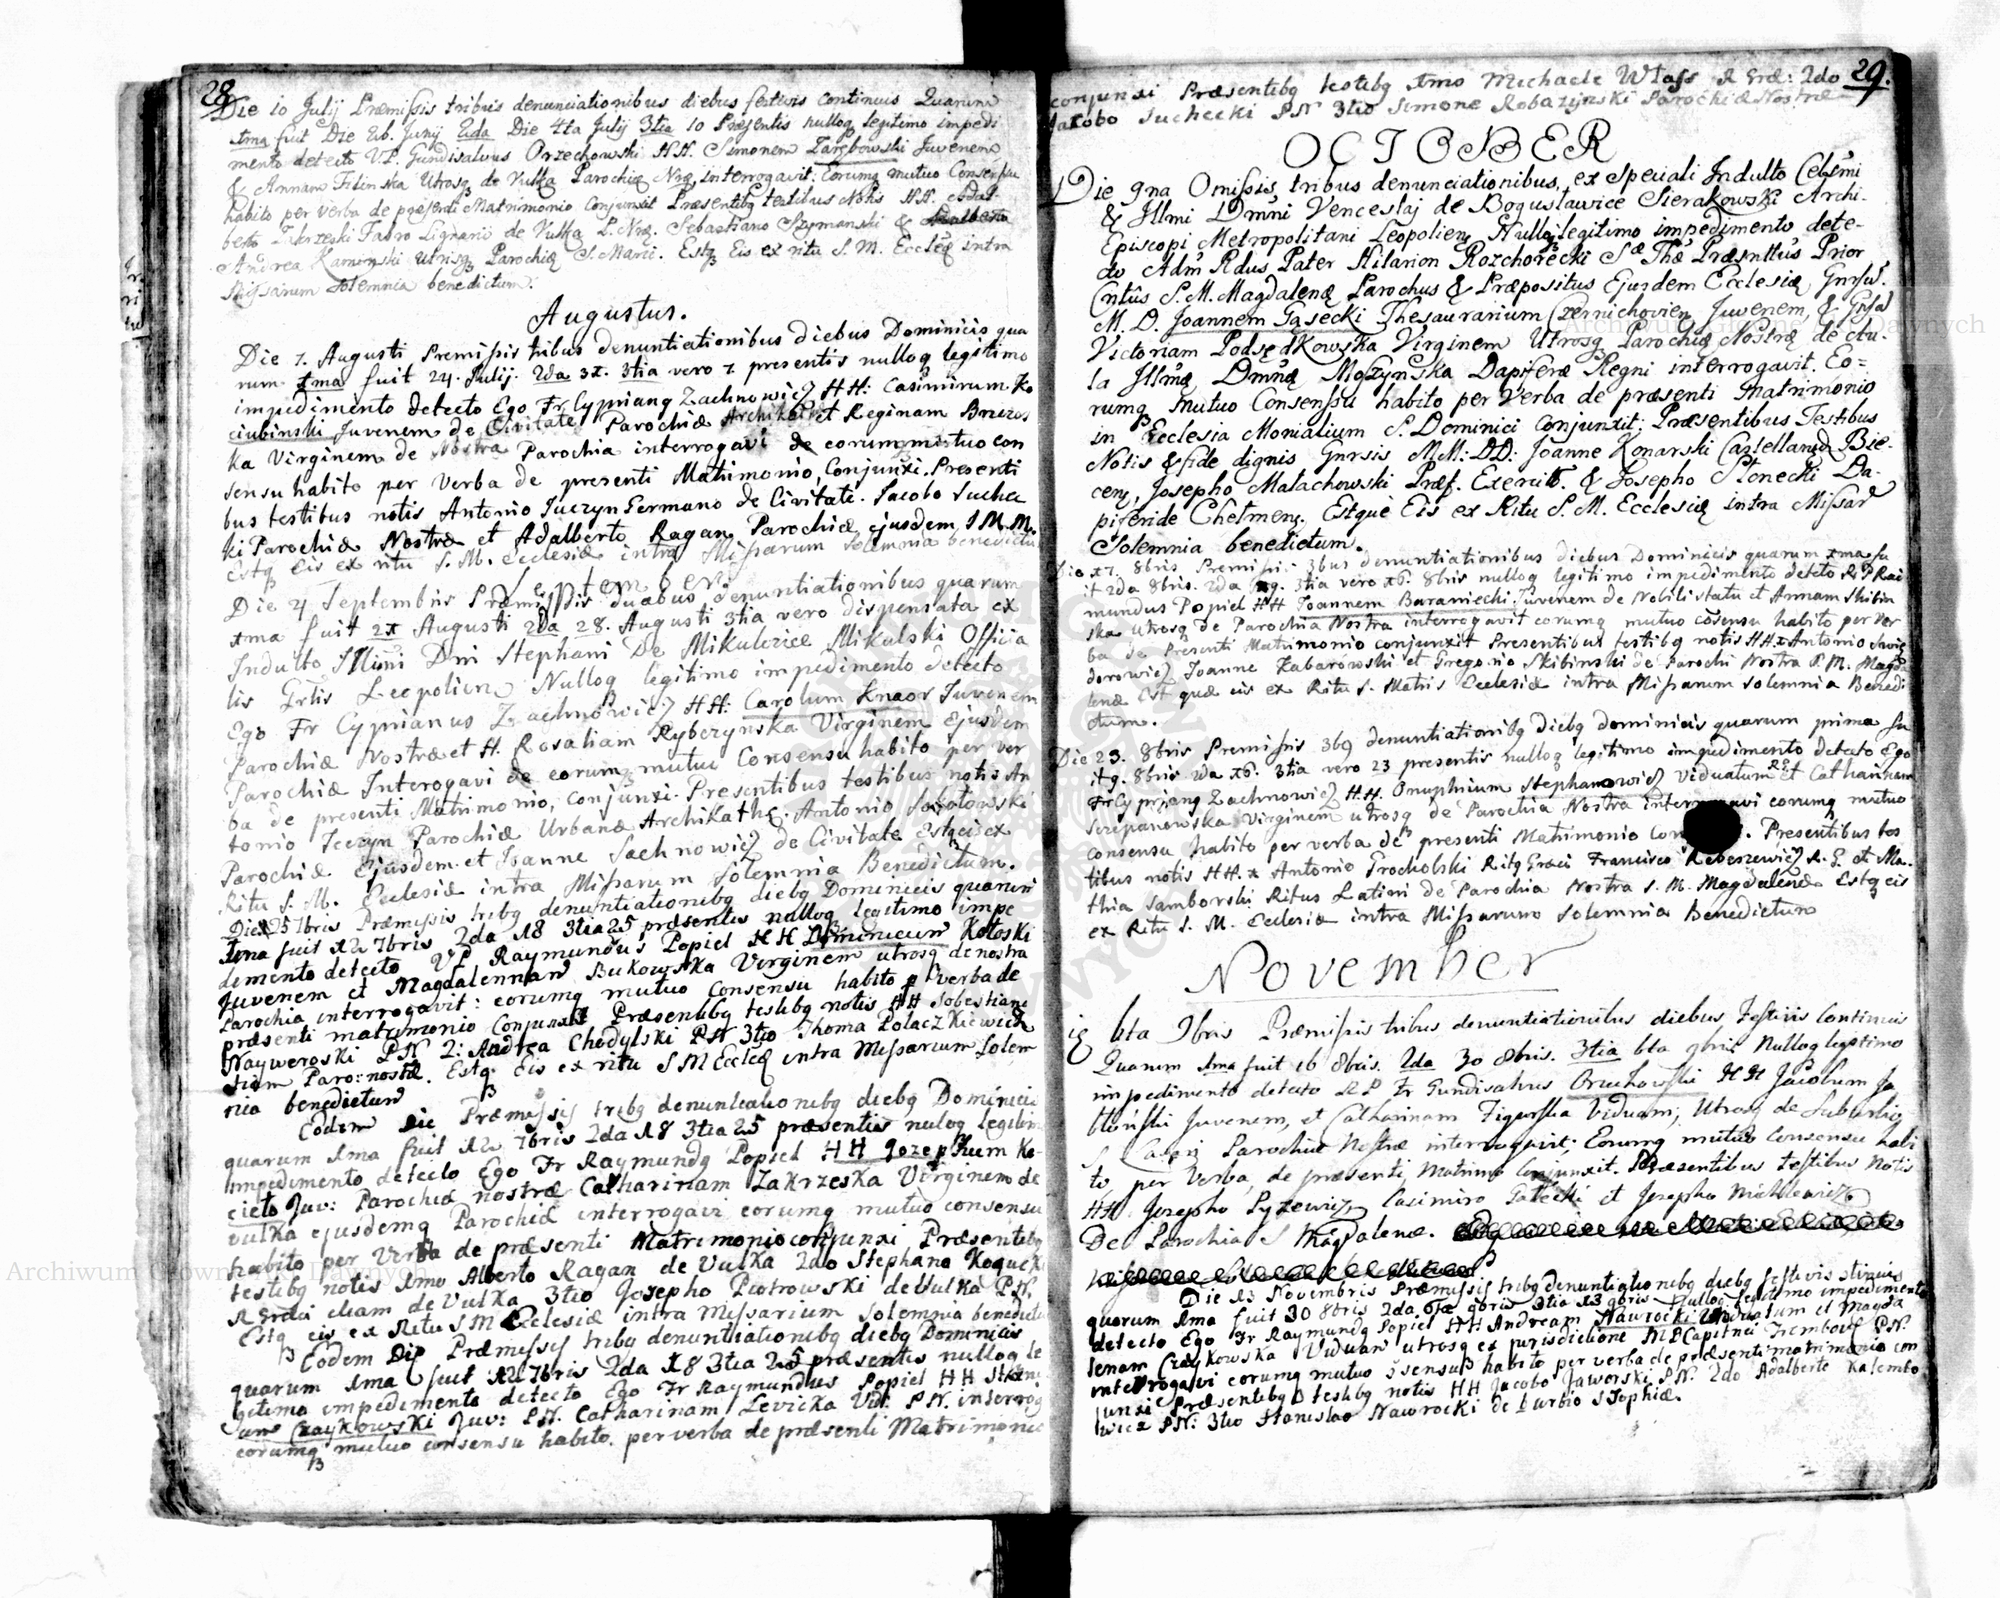 28
Die 10 Julij Præmissis tribus denunciationibus diebus festivis continuis Quarum
1ma fuit Die 26. Junij 2da Die 4ta Julij 3tia 10 Præsentis nulloq legitimo impedi
mento detecto V.P. Gundisalvus Orzechowski H.H. Simonem Zarębowski Juvenem
& Annam Filinska Utrosq de Vulka Parochiæ Nræ, interrogavit: Eorumq mutuo Consensu
habito per verba de præsenti Matrimonio Conjunxit Præsentibq testibus Notis H.H. Adal
berto Zakrzeski Fabro Lignario de Vulka P. Nræ. Sebastiano Szymanski &
Andrea Kaminski Utrisq Parochiæ S. Mariæ. Estq Eis ex ritu S. M. Eccleæ intra
Missarum Solemnia benedictum.
Augustus.
Die 7. Augusti Premissis tribus denuntiationibus diebus Dominicis qua
rum 1ma fuit 24. Julij. 2da 31. 3tia vero 7 presentis nulloq legitimo
impedimento detecto Ego Fr. Cyprianq Zachnowicz HH: Casimirum Ko
ciubinski Juvenem de Civitate Parochiæ Archikat: et Reginam Brzezos
ka Virginem de Nostra Parochia interrogavi de eorumq mutuo con
sensu habito per Verba de presenti Matrimonio, Conjunxi. Presenti
bus testibus notis Antonio Juczyn Germano de Civitate. Jacobo Suche
ki Parochiæ Nostræ et Adalberto Ragan Parochiæ ejusdem S M. M.
Estq Eis ex ritu S. M. Ecclesiæ intra Missarum Solemnia benedictu
September
Die 4 Septembris Præmissis duabus denuntiationibus quarum
1ma fuit 21 Augusti 2da 28. Augusti 3tia vero dispensata ex
Indulto Illmi Dni Stephani De Mikulicze Mikulski Officia
lis Grlis Leopolien Nulloq legitimo impedimento detecto
Ego Fr Cyprianus Zachnowicz HH: Carolum Knaor Juvenem
Parochiæ Nostræ et H. Rosaliam Rybczynska Virginem Ejusdem
Parochiæ Interogavi de eorumq mutuo Consensu habito per ver
ba de presenti Matrimonio, Conjunxi. Presentibus testibus notis An
tonio Jcczyn Parochiæ Urbanæ Archikathe. Antonio Sobotowski
Parochiæ Ejusdem et Joanne Sachnowicz de Civitate Estq eis ex
Ritu S. M. Ecclesiæ intra Missarum Solemnia Benedictum.
Die 25 7bris Præmissis tribq denuntiationibq diebq Dominicis quarum
1ma fuit 12 7bris 2da 18 3tia 25 præsentis nulloq legitimo impe
demento detecto VP Raymundus Popiel HH Dominicum Kotoski
Juvenem et Magdalennam Bukowska Virginem utrosq de nostra
Parochia interrogavit: eorumq mutuo Consensu habito p verba de
præsenti matrimonio Conjunxit Præsentibq testibq notis HH Sobestiano
Nayweroski PN 2: Andrea Chodylski PN 3tio Thoma Polaczkiewicz
etiam Paro: nostæ. Estq Eis ex ritu S M Eccleæ intra Missarium Solem
nia benedictum
Eodem Die Præmissis tribq denuntiationibq diebq Dominicis
quarum 1ma fuit 12 7bris 2da 18 3tia 25 præsentis nuloq legitim
impedimento detecto Ego Fr Raymundq Popiel HH Jozephum Ko-
cieto Juv: Parochiæ nostræ Catharinam Zakrzeska Virginem de
vulka ejusdemq Parochiæ interrogavi eorumq mutuo consensu
habito per Verba de præsenti Matrimonio conjunxi Præsentibq
testibq notis 1mo Alberto Ragan de Vulka 2do Stephano Koguck
R Græci etiam de Vulka 3tio Josepho Piotrowski de Vulka PN.
Estq eis ex Ritu S M Ecclesiæ intra Missarium Solemnia benedictu
Eodem Die Præmissis tribq denuntiationibq diebq Dominicis
quarum 1ma fuit 12 7bris 2da 18 3tia 25 præsentis nulloq le
gitimo impedimento detecto Ego Fr Raymundus Popiel HH Stepha
um Czaykowski Juv: PN. Catharinam Levicka Vid: PN. interrog
eorumq mutuo consensu habito. per verba de præsenti Matrimonio
29.
conjunxi Præsentibq testibq 1mo Michaele Wlass R Græ: 2do
Jacobo Suchecki PN 3tio Simone Robaszynski Parochiæ Nostræ
OCTOBER
Die 9na Omissis tribus denunciationibus, ex Speciali Indulto Celsmi
& Illmi Dmni Venceslaj de Boguslawice Sierakowski Archi-
Episcopi Metropolitani Leopolien, Nulloq legitimo impedimento dete-
cto Adm Rdus Pater Hilarion Rozchorecki Sæ Thæ Præsnttus Prior
Cntûs S. M. Magdalenæ Parochus & Præpositus Ejusdem Ecclesiæ Gnrsu.
M. D. Joannem Gąsecki Thesaurarium Czernichovien Juvenem, & Gnsa
Victoriam Podsędkowska Virginem Utrosq Parochiæ Nostræ de Au-
la Illmæ Dmnæ Moszynska Dapiferæ Regni interrogavit. Eo=
rumq mutuo Consensu habito per Verba de præsenti Matrimonio
in Ecclesia Monialium S. Dominici Conjunxit; Præsentibus Testibus
Notis & fide dignis Gnrsis M.M: DD: Joanne Konarski Castellanid Bie-
cens, Josepho Małachowski Præf. Exercitt. & Josepho Słonecki Da-
piferide Chełmens. Estque Eis ex Ritu S. M. Ecclesiæ intra Missar
Solemnia benedictum.
Die 17. 8bris Premissi: 3bus denuntiationibus diebus Dominicis quarum 1ma fu
it 2da 8bris. 2da 9. 3tia vero 16. 8bris nulloq legitimo impedimento deteto RP Rai
mundus Popiel HH Joannem Baraniecki Juvenem de Nobili statu et Annam Skibin
ska utrosq de Parochia Nostra interrogavit eorumq mutuo cosensu habito per Ver
ba de Presenti Matrimonio conjunxit Presentibus testibq notis HH 1 Antonio Swię
dorowicz Joanne Kabarowski et Gregorio Skibinski de Parochi Nostra S. M. Magda
lenæ Est quæ eis ex Ritu S. Matris Ecclesiæ intra Missarum solemnia Benedi
ctum.
Die 23. 8bris Premissis 3bq denuntiationibq diebq dominicis quarum prima fu
it 9. 8bris 2da 16. 3tia vero 23 presentis nulloq legitimo impedimento detecto Ego
Fr Cyprjanq Zachnowicz H.H. Onuphrium Stephanowicz viduatum RG et Catharinam
Szczepanowska Virginem utrosq de Parochia Nostra interrogavi eorumq mutuo
consensu habito per verba de presenti Matrimonio Con. Presentibus tes
tibus notis HH. 1 Antonio Grocholski Ritq Græci Francisco Reberzewicz R. G. et Ma-
thia Samborski Ritus Latini de Parochia Nostra S. M. Magdalenæ Estq eis
ex Ritu S. M. Ecclesiæ intra Missarum Solemnia Benedictum
November
6ta 9bris Præmissis tribus denuntiationibus diebus Festivis Continuis
Quarum 1ma fuit 16 8bris. 2da 30 8bris. 3tia 6ta 9bris Nulloq legitimo
impedimento detecto RP Fr Gundisalvus Orzechowski HH Jacobum Ja
błonski Juvenem, et Catharinam Figurska Viduam, Utrosq de Suburbio
Parochiæ Nostræ interrogavit; Eorumq mutuo Consensu habi
to per Verba, de præsenti, Matrimo Conjunxit. Præsentibus testibus Notis
HH Josepho Syzewicz Casimiro Gałecki et Josepho Michlewicz
De Parochia S Magdalenæ.
Die 13 Novembris Præmissis tribq denuntiationibq diebq festivis
quorum 1ma fuit 30 8bris 2da 6ta 9bris 3tia 13 9bris Nulloq legitimo impedimento
detecto Ego Fr Raymundq Popiel HH Andream Nawrocki Viduatum et Magda
lenam Czaykowska Viduam utrosq ex jurisdictione MP Capitnei Trembow PN.
interrogavi eorumq mutuo consensu habito per verba de præsenti matrimonio con
junxi Præsentibq testibq notis HH Jacobo Jaworski PN. 2do Adalberto Kalembo
wicz PN: 3tio Stanislao Nawrocki de Curbio S Sophiæ.
Archiwum Główne Akt Dawnych
Archiwum Główne Akt Dawnych